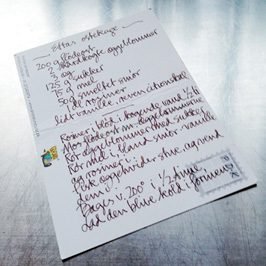 Ottas ostekage
200 g flødeost
2 hårdkogte æggeblommer
3 æg
125 g sukker
75 g mel
50 g smeltet smør
1 dl rosiner
lidt vanille, revet citronskal
Rosiner i blød i kogende vand 1/2 t
Mos flødeost m. æggeblommerne
Rør æggeblommer med sukker
Rør mel i, bland smør, vanille
og rosiner i
Pisk æggehvider stive, og vend
dem i
Bages v. 200° i 1/2 time
Lad den blive kold i formen